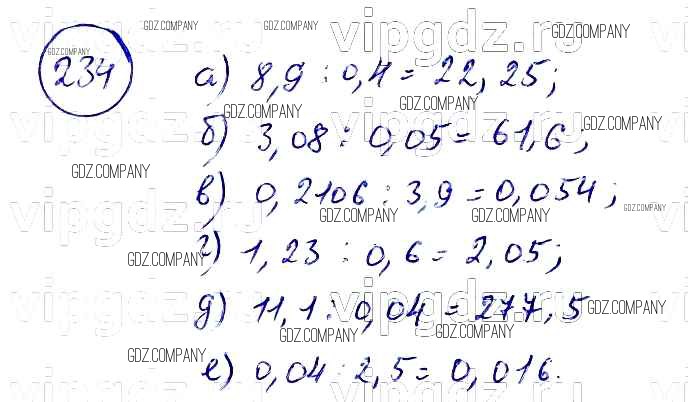 vipgdz.ru vipgdz.ru
GDZ.COMPANY GDZ.COMPANY GDZ.COMPANY GDZ.COMPANY
234 а) 8,9 : 0,4 = 22,25;
GDZ.COMPANY GDZ.COMPANY GDZ.COMPANY
vipgdz.ru vipgdz.ru
б) 3,08 : 0,05 = 61,6;
GDZ.COMPANY
в) 0,2106 : 3,9 = 0,054;
vipgdz.ru vipgdz.ru
GDZ.COMPANY GDZ.COMPANY GDZ.COMPANY
г) 1,23 : 0,6 = 2,05;
GDZ.COMPANY
vipgdz.ru vipgdz.ru
д) 11,1 : 0,04 = 277,5
GDZ.COMPANY GDZ.COMPANY GDZ.COMPANY
GDZ.COMPANY
е) 0,04 : 2,5 = 0,016.
vipgdz.ru vipgdz.ru